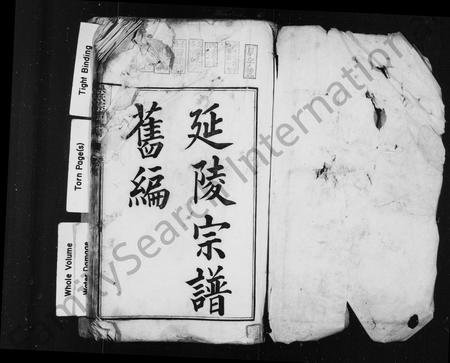 延陵宗譜
舊編
Tight Binding
Torn Page(s)
Whole Volume
Water Damage
FamilySearch International